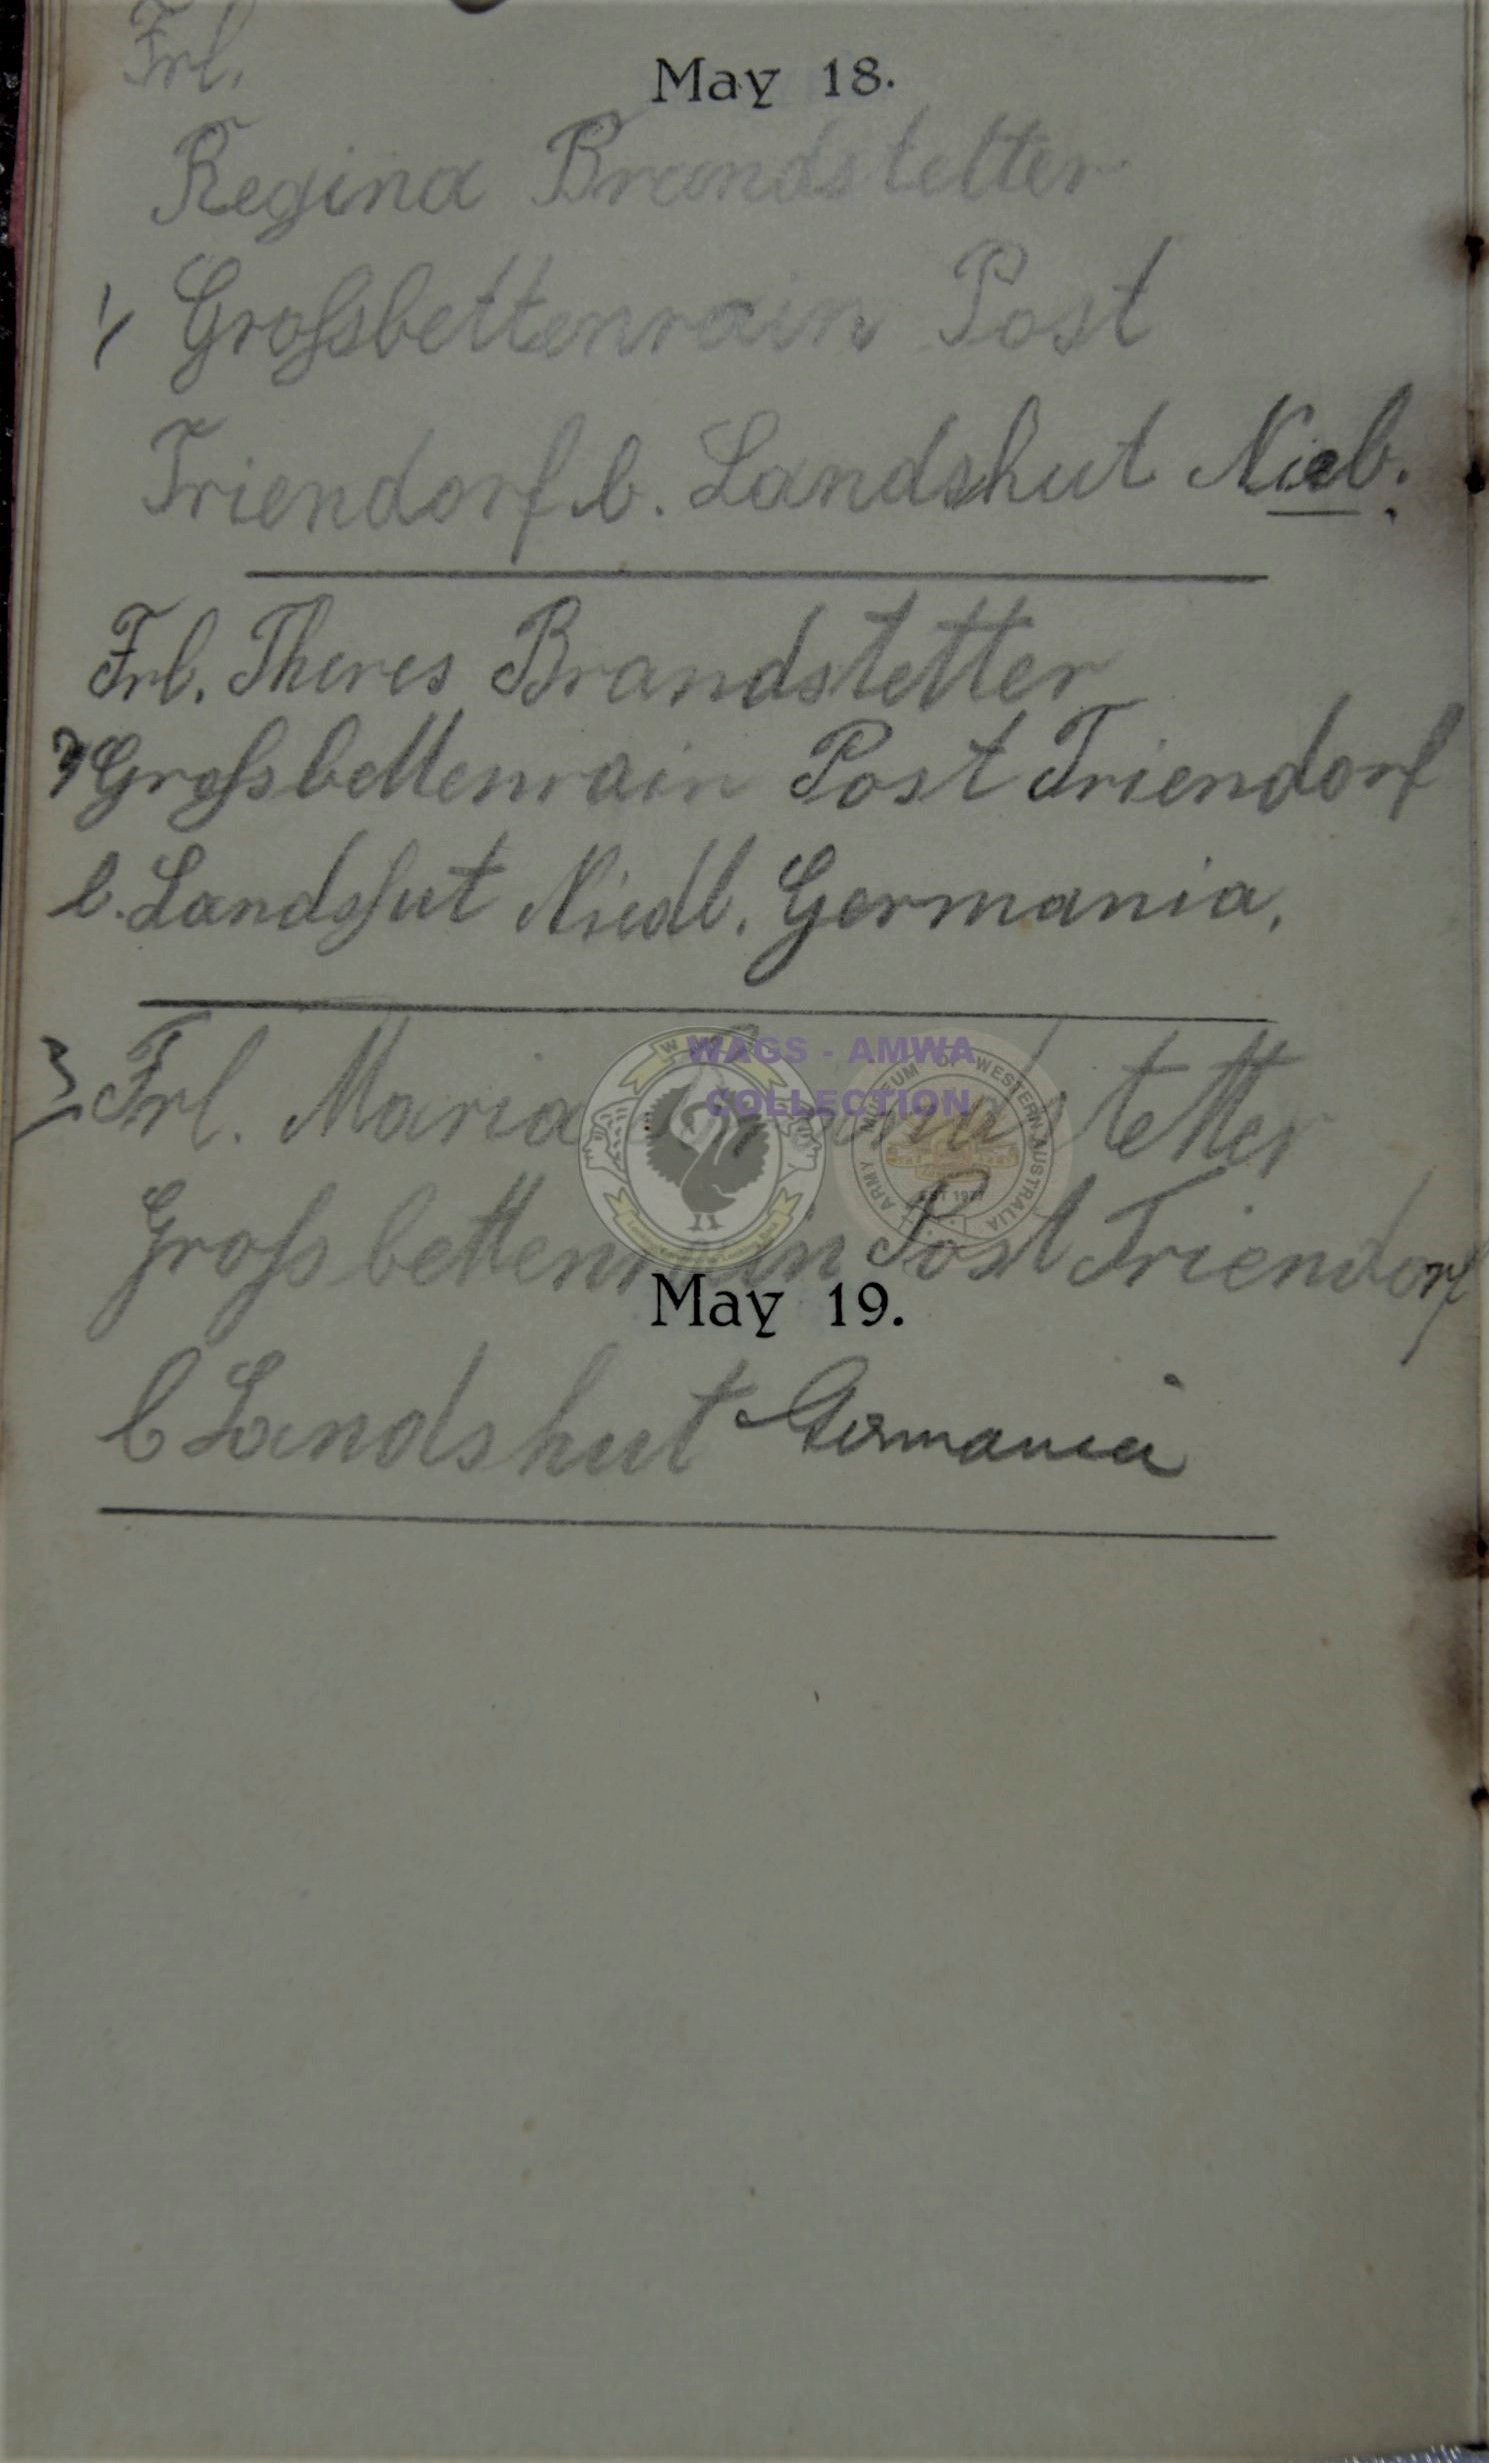 Frl.
May 18.
Regina Brandstetter
1/ Großbettenrain Post
Triendorf b. Landshut Nieb.
Frl. Theres Brandstetter
Großbettenrain Post Triendorf
b. Landshut Niedb. Germania.
WAGS - AMWA
COLLECTION
3 Frl. Maria Brandstetter
Großbettenrain Post Triendorf
May 19.
b Landshut Germania
ARMY MUSEUM OF WESTERN AUSTRALIA
EST 1977